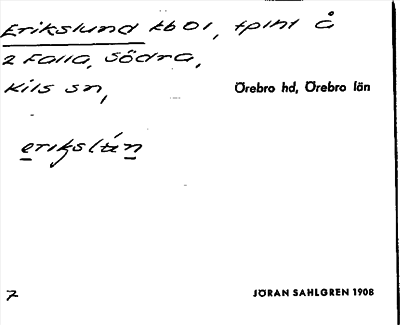 Erikslund tb 01, tpint å
2 Falla, Södra,
Kils sn,
Örebro hd, Örebro län
7
JÖRAN SAHLGREN 1908